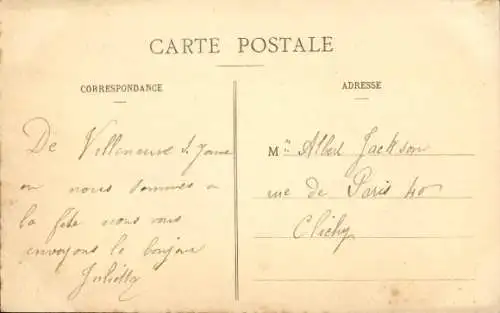 CARTE POSTALE
CORRESPONDANCE
ADRESSE
De Villeneuve S. Jaune
ou nous sommes a
la fête nous vous
envoyons le bonjour
Juliette
Mr Albert Jackson
rue de Paris 40
Clichy